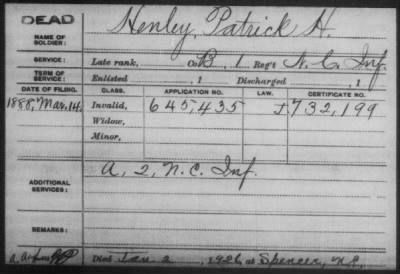 DEAD
NAME OF SOLDIER: Henley, Patrick H.
SERVICE: Late rank, Co. B, 1 Reg't N.C. Inf.
TERM OF SERVICE: Enlisted , 1 Discharged , 1
DATE OF FILING. CLASS. APPLICATION NO. LAW. CERTIFICATE NO.
1888, Mar. 14. Invalid, 645,435 732,199
Widow,
Minor,
ADDITIONAL SERVICES: A, 2, N.C. Inf.
REMARKS:
Died Jan. 2, 1926, at Spencer, N.C.